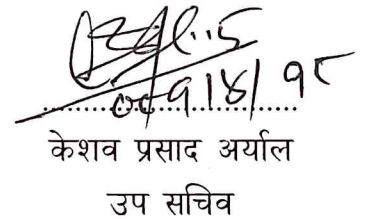 ०८१।४।१८
केशव प्रसाद अर्याल
उप सचिव